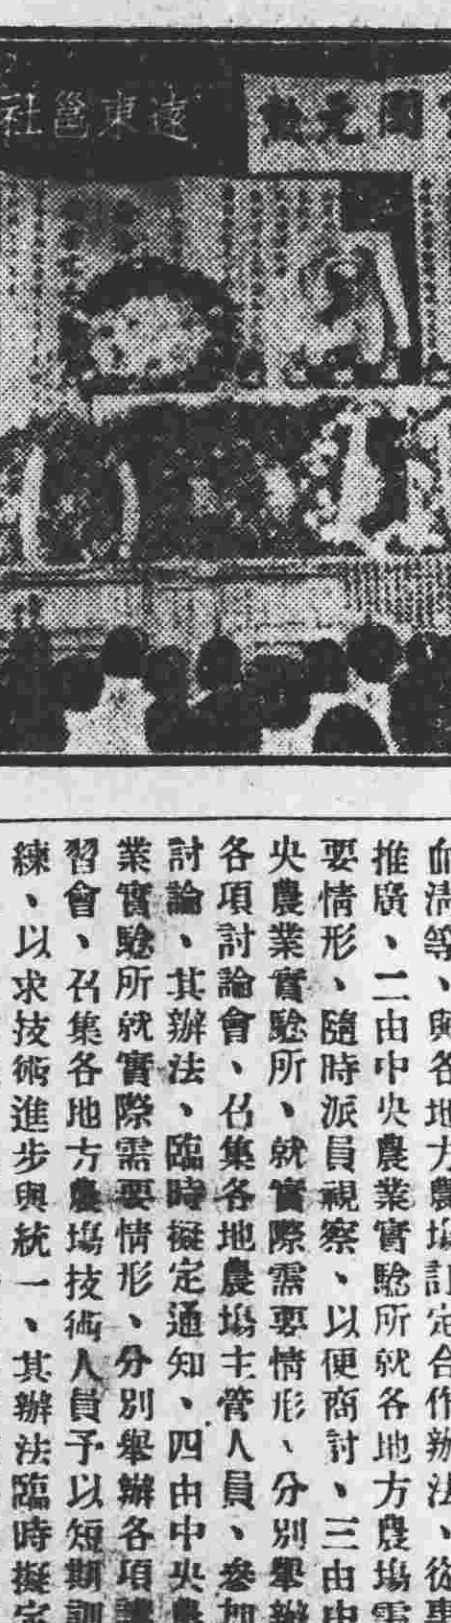 社邕東遠
勲元國
血清等、與各地方農場訂定合作辦法、從事
推廣、二由中央農業實驗所就各地方農塲需
要情形、隨時派員視察、以便商討、三由中
央農業實驗所、就實際需要情形、分別舉辦
各項討論會、召集各地農塲主管人員、參加
討論、其辦法、臨時擬定通知、四由中央農
業實驗所就實際需要情形、分別舉辦各項講
習會、召集各地方農塲技術人員予以短期訓
練、以求技術進步與統一、其辦法臨時擬定